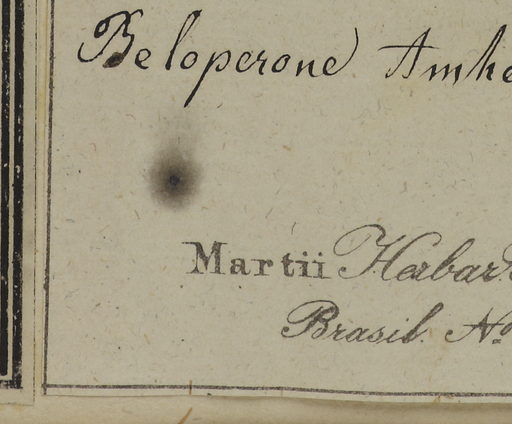 Beloperone Amhe
Martii Herbar
Brasil. No